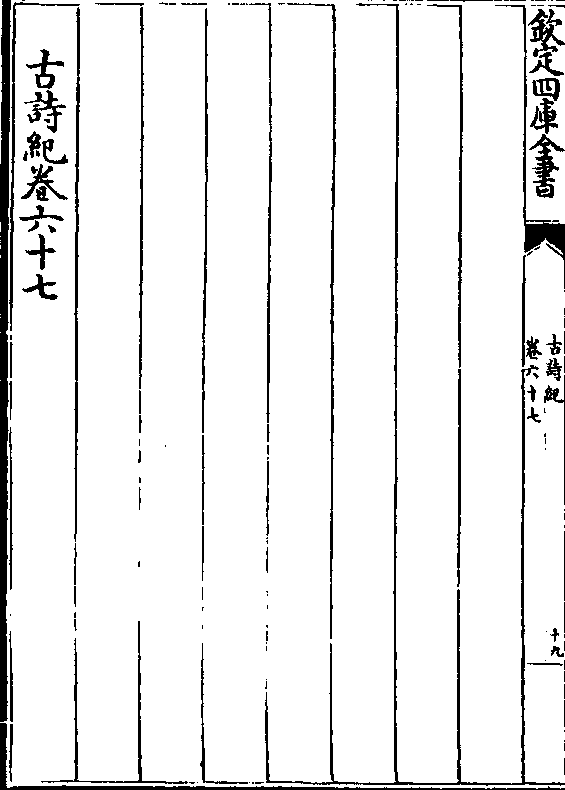 欽定四庫全書
古詩紀
卷六十七
十九
古詩紀卷六十七